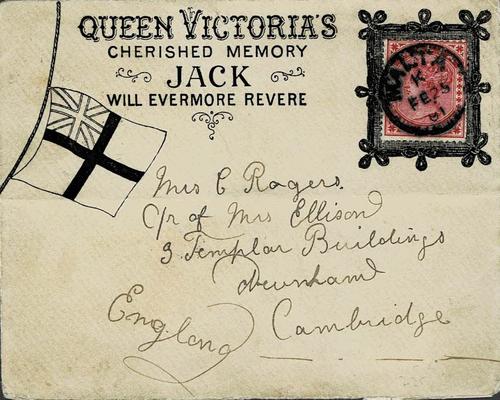 QUEEN VICTORIA'S
CHERISHED MEMORY
JACK
WILL EVERMORE REVERE
MALTA
K
FE 25
01
Mrs C Rogers.
C/r of Mrs Ellison
3 Templar Buildings
Cambridge
England